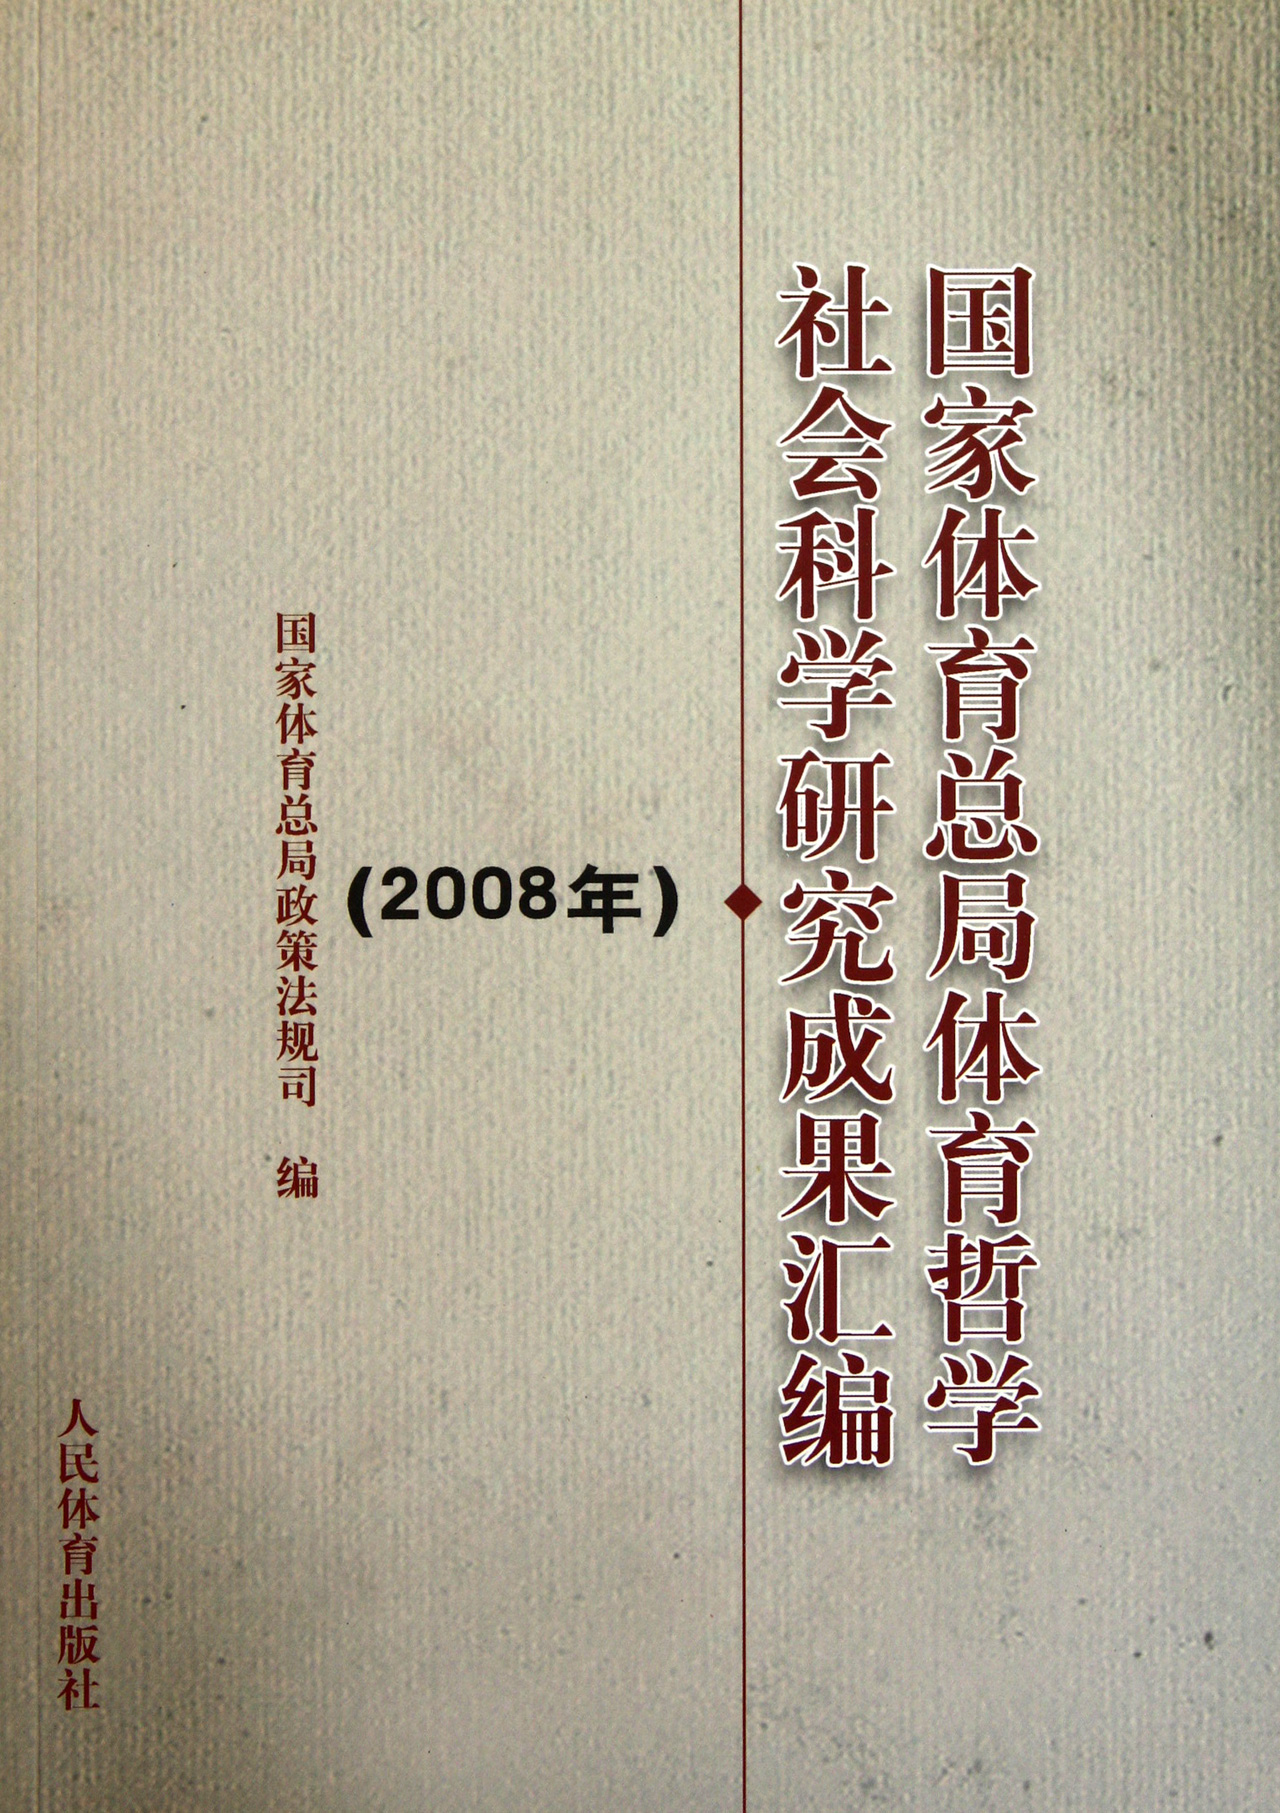 国家体育总局体育哲学
社会科学研究成果汇编
(2008年)
国家体育总局政策法规司 编
人民体育出版社